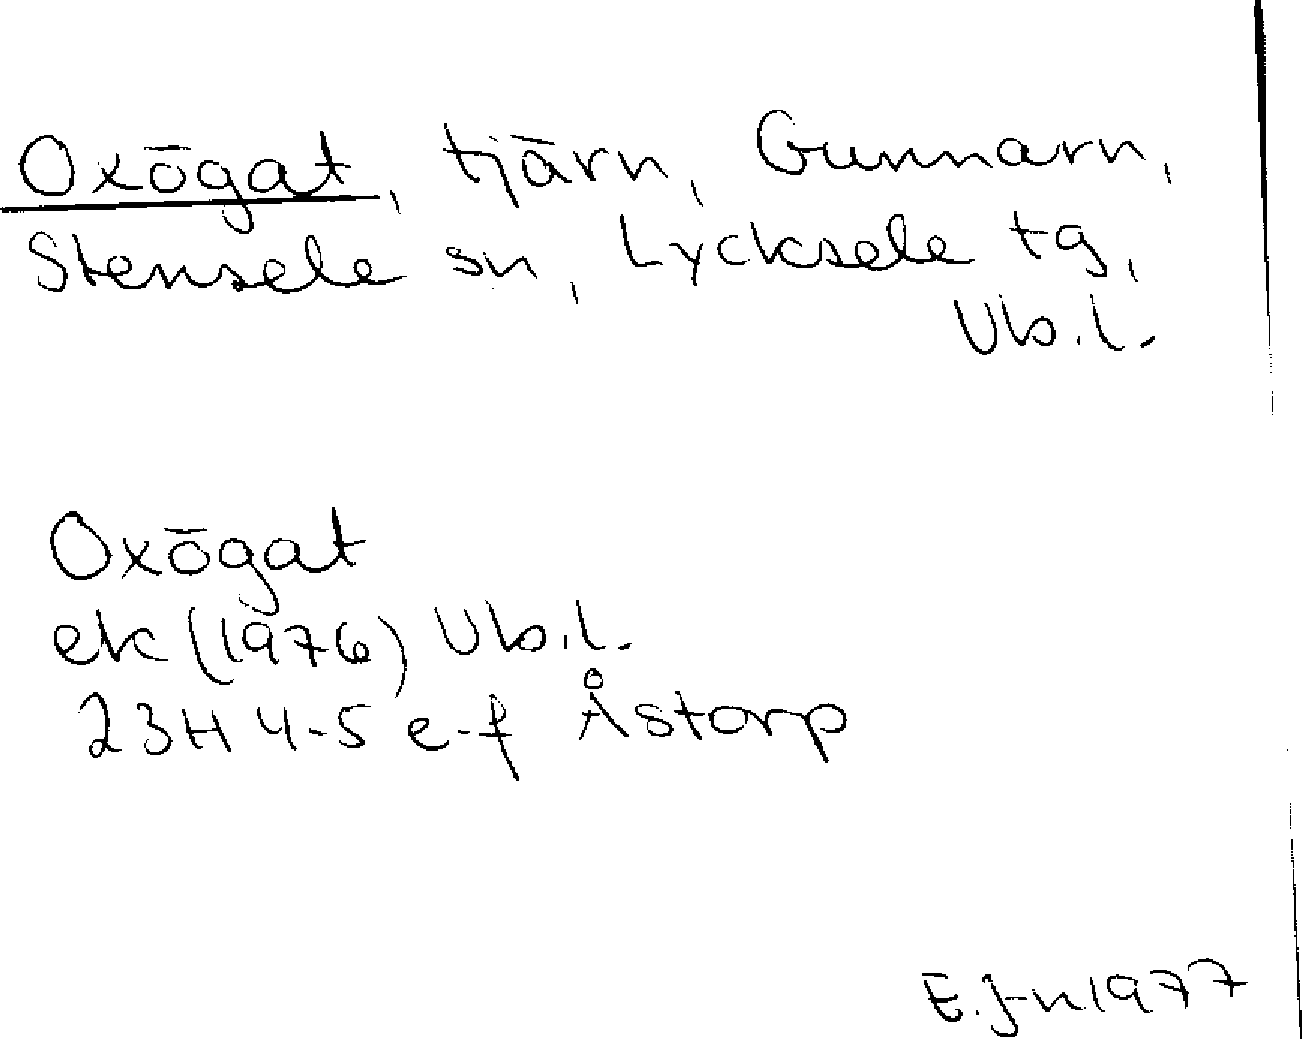 Oxögat, tjärn, Gunnarn,
Stensele sn, Lycksele tg,
Vb.l.
Oxögat
ek (1976) Vb.l.
23H 4-5 e-f Åstorp
E.J-n 1977